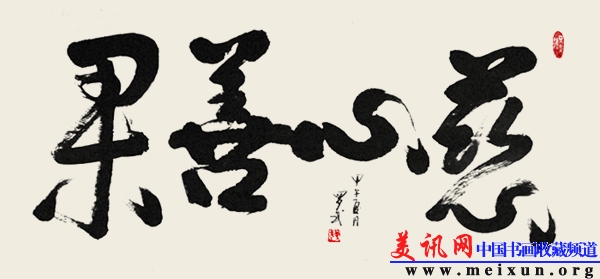 慈心善果
甲午夏月
美讯网 中国书画收藏频道
www.meixun.org